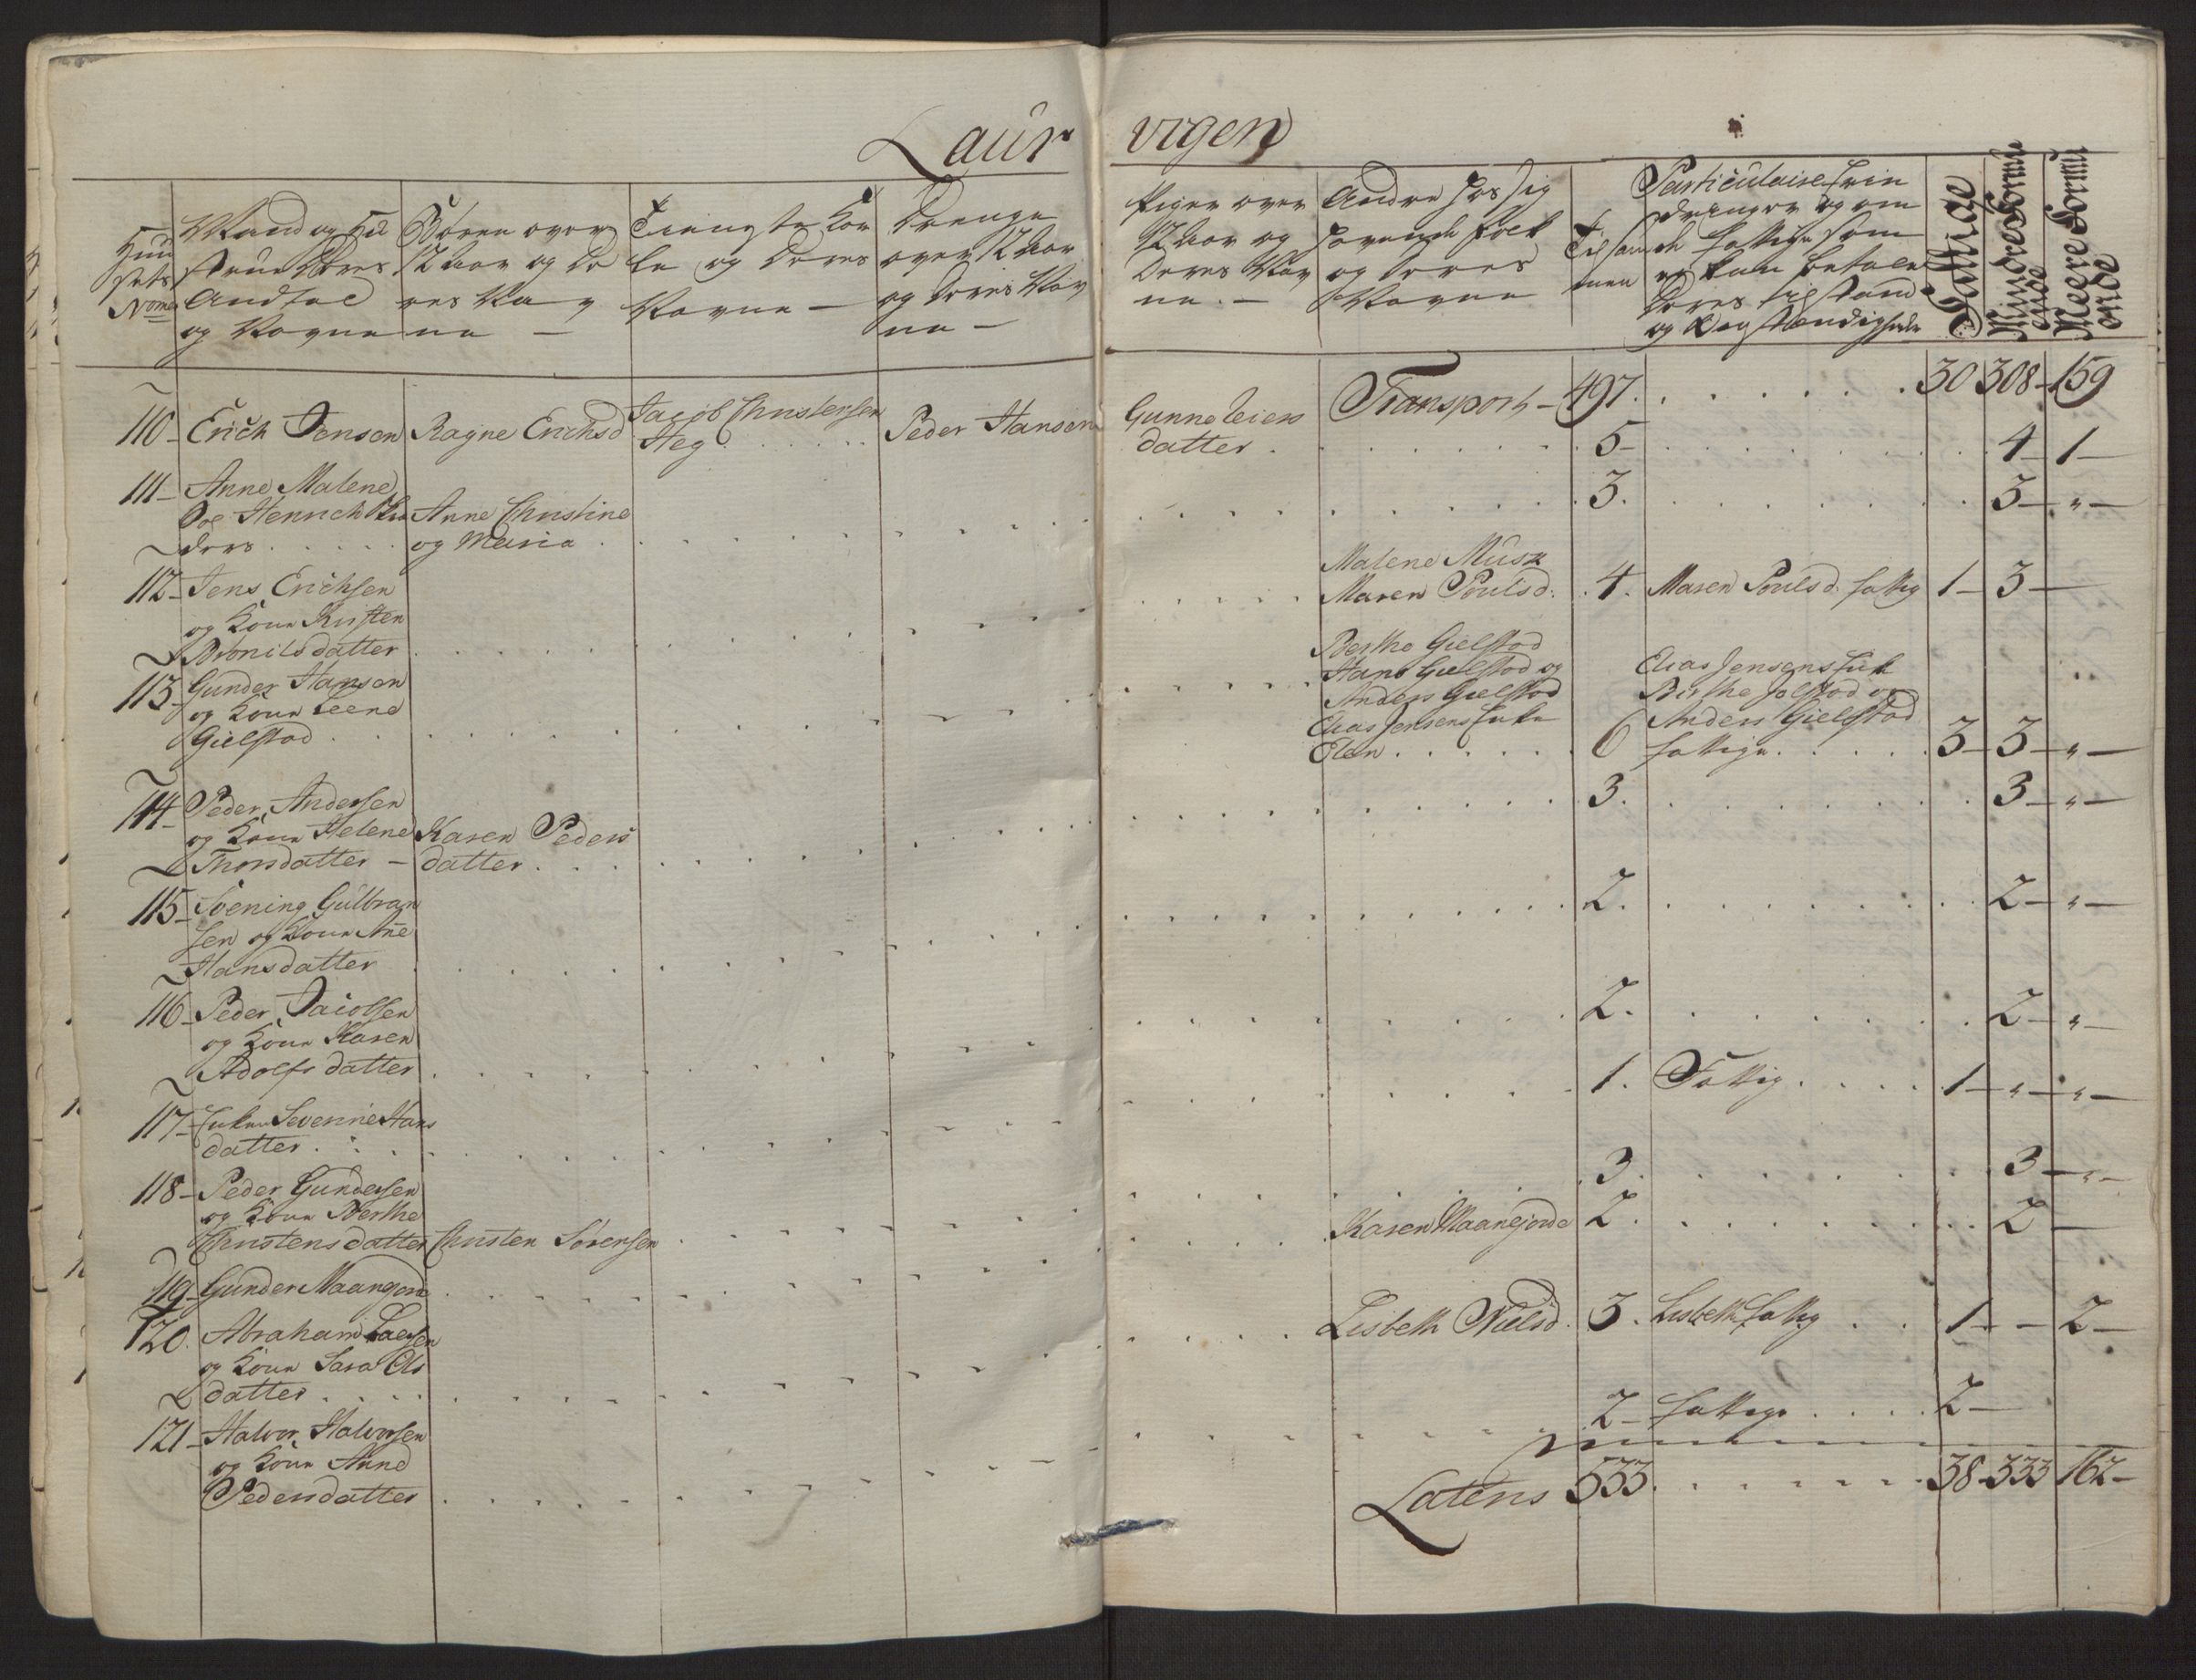 Laur vigen
Huu
sets
Nomer
Mand og Hu
strue Deres
Andtal
og Navne
Børen over
12 Aar og De
res Nav
ne —
Tieniste Kar
le og Deres
Navne —
Drenge
over 12 Aar
og Deres Nav
ne —
Piger over
12 Aar og
Deres Nav
ne. —
Andre hos sig
havende folk
og Deres
Navne
Til sam
men
Particulaire Erin
dringer og om
de fattige som
ey kan betale
Deres tilstand
og Omstændigheder
Fattige
Mindre Formu
ende
Meere Formu
ende
Transport - 497. 30 308 - 159
110 - Erich Jensen Ragne Erichsd Jacob Christensen
Heg Peder Hansen Gunne Leiers
datter . 5 - 4 - 1 -
111 - Anne Malene
Sal Henrich
ders Anne Christine
og Maria . 3. 3 - " -
112 - Jens Erichsen
og Kone Kirsten
Bronilsdatter
Malene Mus
Maren Poulsd. 4. Maren Poulsd. fattig 1 - 3 -
113 - Gunder Hansen
og Kone Leene
Gielstad
Berthe Gielstad
Hans Gielstad og
Anders Gielstad
Elias Jensens Enke
Elen 6
Elias Jensens Enke
Birthe Jelstad og
Anders Gielstad
fattige 3 - 3 - " -
114 - Peder Andersen
og Kone Helene
Thorsdatter - Karen Peders
datter . 3. 3 - " -
115 - Svening Gulbran
sen og Kone Ane
Hansdatter 2. 2 - " -
116 - Peder Jacobsen
og Kone Karen
Adolfs datter 2. 2 - " -
117 - Enken Severine Hans
datter . 1. Fattig 1 - " - " -
118 - Peder Gundersen
og Kone Berthe
Christensdatter Christen Sørensen 3. 3 - " -
119 - Gunder Maanejorde Karen Maanejorde 2. 2 -
120. Abraham Larsen
og Kone Sara Ols
datter Lisbeth Nielsd. 3. Lisbeth fattig 1 - - 2 -
121 - Halvor Halvorsen
og Kone Anne
Pedersdatter 2 - fattige 2 -
Latens 533. 38 - 333 162 -